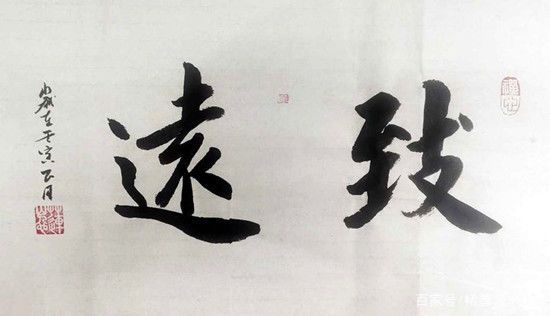 致遠
歲在壬寅正月
百家号/